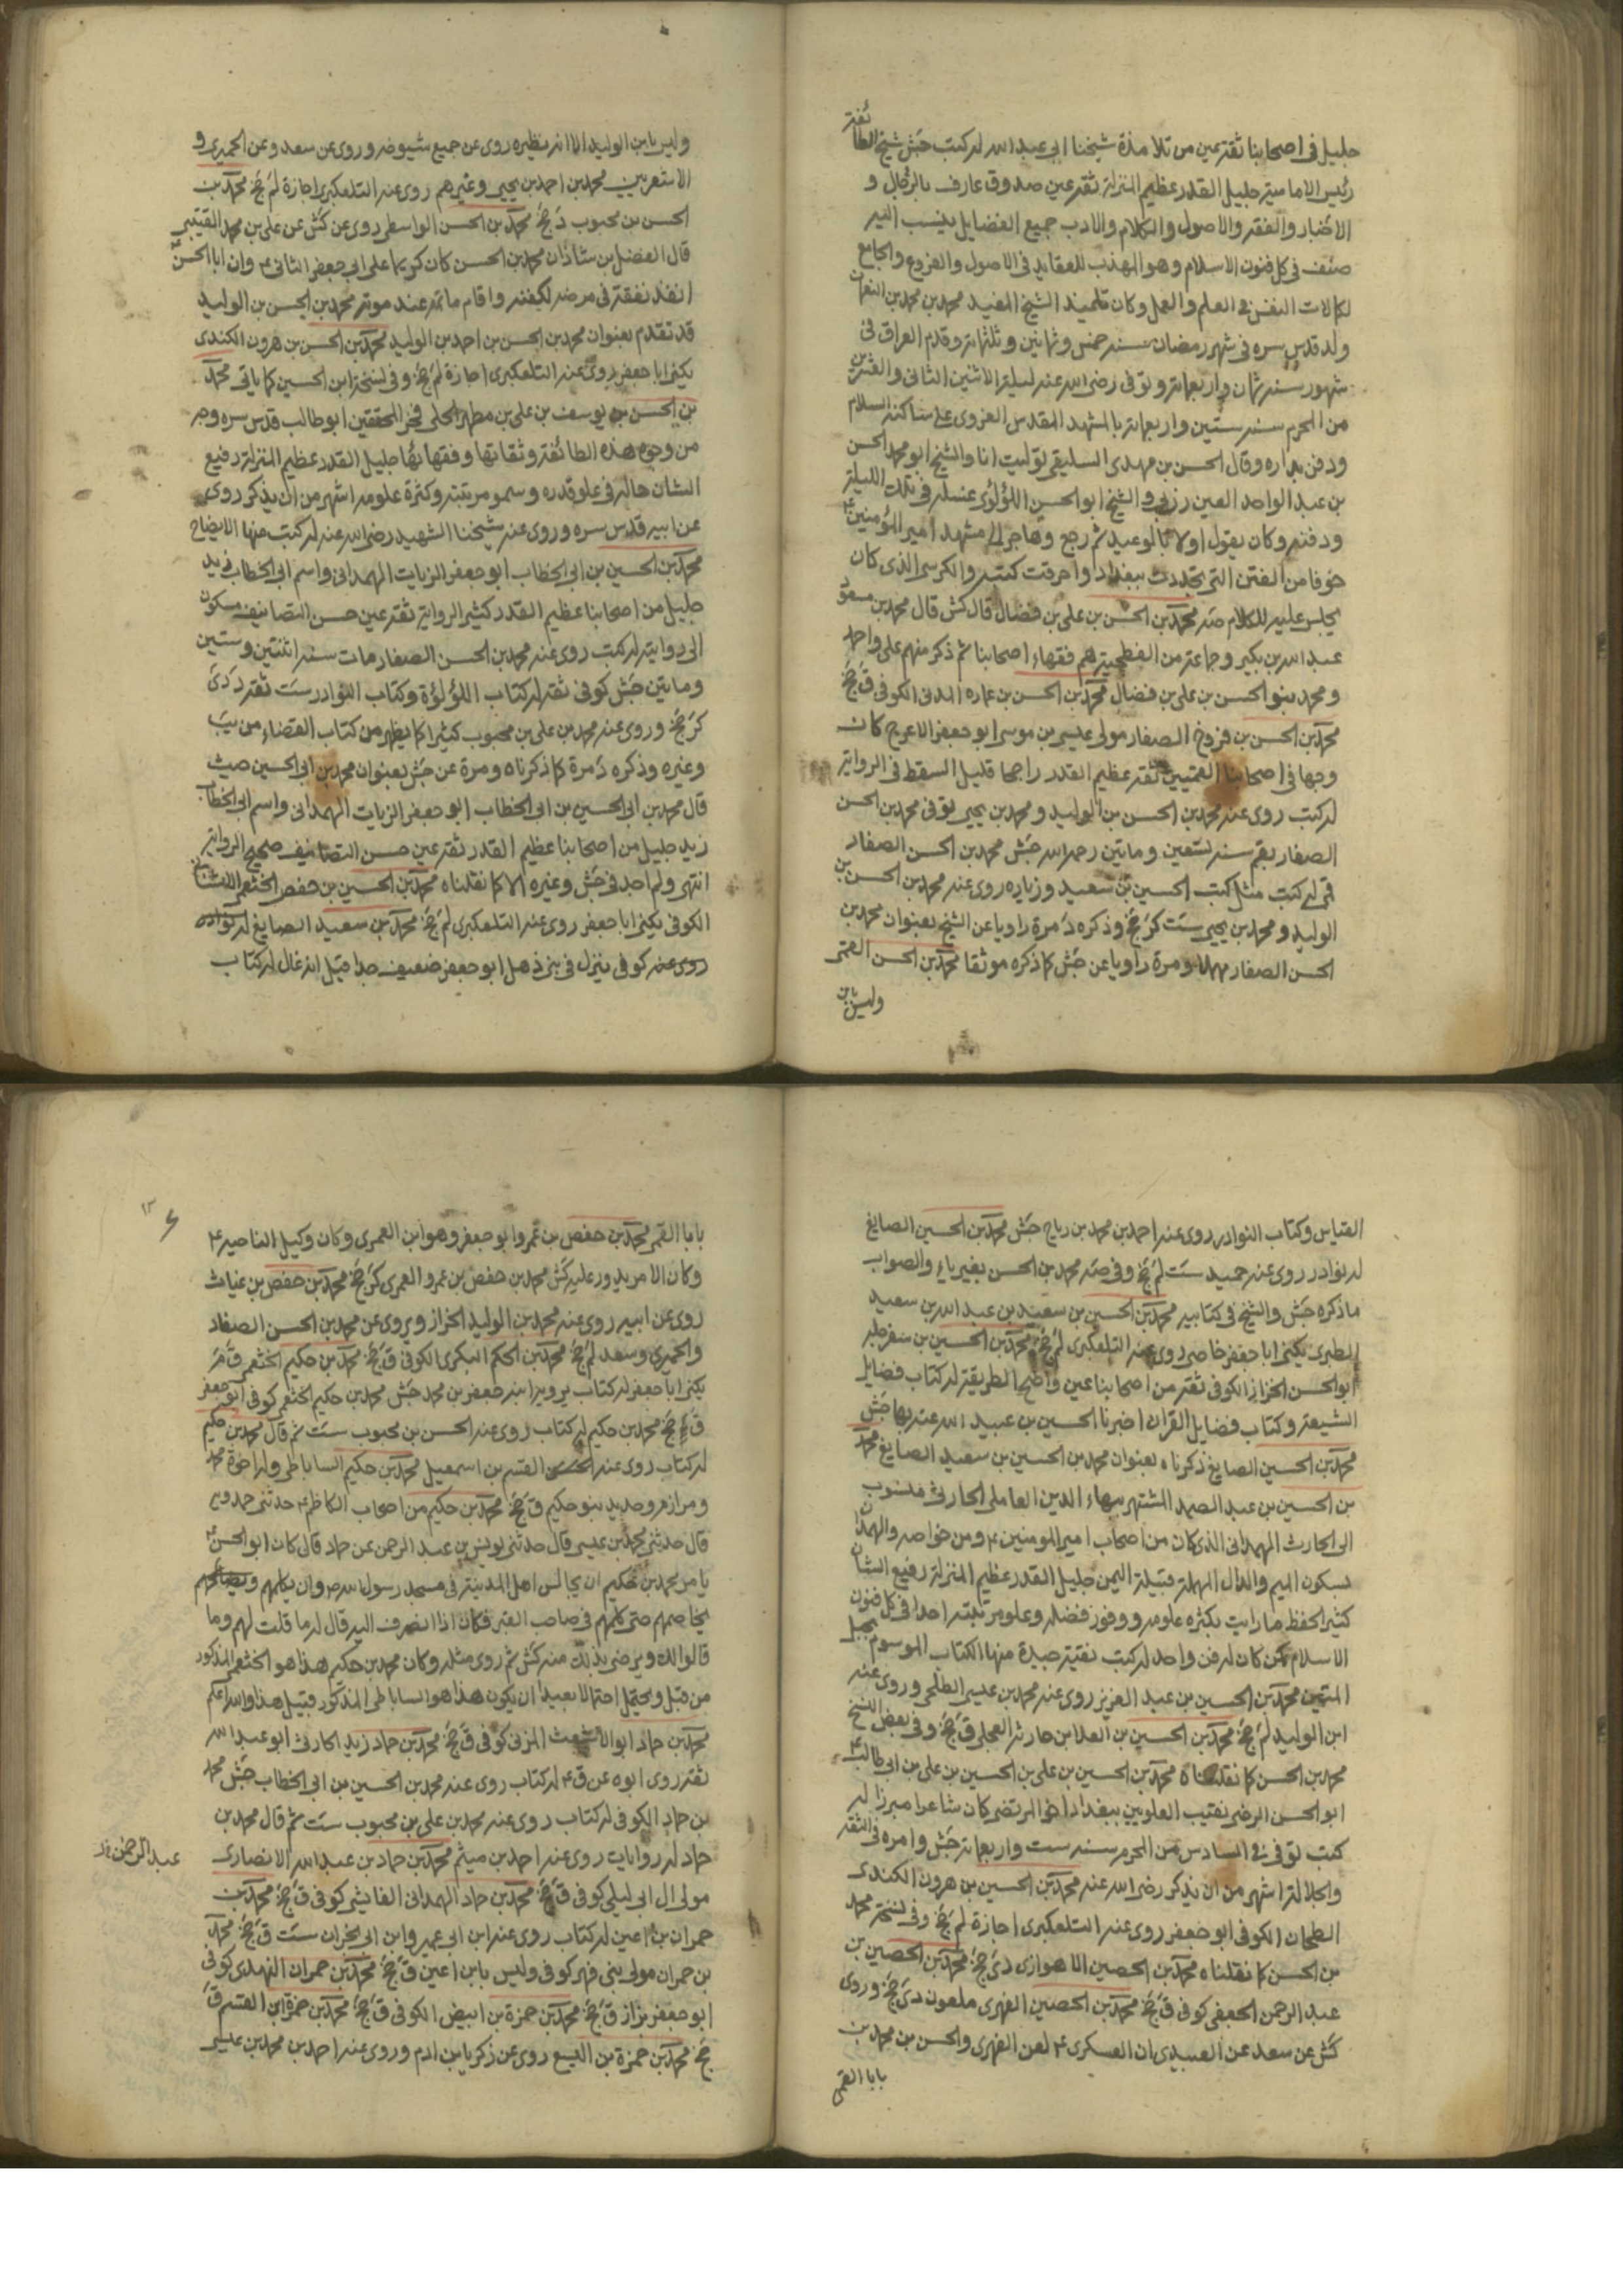 جليل في اصحابنا ثقة عين من تلامذة شيخنا ابي عبد الله له كتب جش شيخ الطائفة
رئيس الامامية جليل القدر عظيم المنزلة ثقة عين صدوق عارف بالرجال و
الاخبار والفقه والاصول والكلام والادب جميع الفضايل ينسب اليه
صنف في كل فنون الاسلام وهو المهذب للعقايد في الاصول والفروع والجامع
لكمالات النفس في العلم والعمل وكان تلميذ الشيخ المفيد محمد بن محمد بن النعمان
ولد قدس سره في شهر رمضان سنة خمس وثمانين وثلثمائة وقدم العراق في
شهور سنة ثمان واربعمائة وتوفي رضي الله عنه ليلة الاثنين الثاني والعشرين
من المحرم سنة ستين واربعمائة بالمشهد المقدس الغروي على ساكنه السلام
ودفن بداره وقال الحسن بن مهدي السليقي توليت انا والشيخ ابو محمد الحسن
بن عبد الواحد العين زربي والشيخ ابو الحسن اللؤلؤي غسله في تلك الليلة
ودفنه وكان يقول اولا بالوعيد ثم رجع وهاجر الى مشهد امير المؤمنين ع
خوفا من الفتن التي تجددت ببغداد واحرقت كتبه والكرسي الذي كان
يجلس عليه للكلام صه محمد بن الحسن بن علي بن فضال قال كش قال محمد بن مسعود
عبد الله بن بكير وجماعة من الفطحية هم فقهاء اصحابنا ثم ذكر منهم على واحد
ومحمد بنو الحسن بن علي بن فضال محمد بن الحسن بن عماره المدني الكوفي ق جخ
محمد بن الحسن بن فروخ الصفار مولى عيسى بن موسى ابو جعفر الاعرج كان
وجها في اصحابنا القميين ثقة عظيم القدر راجحا قليل السقط في الرواية
له كتب روى عنه محمد بن الحسن بن الوليد ومحمد بن يحيى توفي محمد بن الحسن
الصفار بقم سنة تسعين ومايتين رحمه الله جش محمد بن الحسن الصفار
قمي له كتب مثل كتب الحسين بن سعيد وزياده روى عنه محمد بن الحسن بن
الوليد ومحمد بن يحيى ست كر جخ وذكره د مرة راويا عن الشيخ بعنوان محمد بن
الحسن الصفار مهملا ومرة راويا عن جش كما ذكره موثقا محمد بن الحسن القمي
وليس بابن
وليس بابن الوليد الا انه نظيره روى عن جميع شيوخه وروى عن سعد وعن الحميري و
الاشعريين محمد بن احمد بن يحيى وغيرهم روى عنه التلعكبري اجازة لم جخ محمد بن
الحسن بن محبوب د جخ محمد بن الحسن الواسطي روى عن كش عن علي بن محمد القتيبي
قال الفضل بن شاذان محمد بن الحسن كان كريما على ابي جعفر الثاني ع وان ابا الحسن ع
انفذ نفقته في مرضه لكفنه واقام ماتمه عند موته محمد بن الحسن بن الوليد
قد تقدم بعنوان محمد بن الحسن بن احمد بن الوليد محمد بن الحسن بن هرون الكندي
يكنى ابا جعفر روى عنه التلعكبري اجازة لم جخ وفي نسخة ابن الحسين كما ياتي محمد
بن الحسن بن يوسف بن علي بن مطهر الحلي فخر المحققين ابو طالب قدس سره وجه
من وجوه هذه الطائفة وثقاتها وفقهائها جليل القدر عظيم المنزلة رفيع
الشان حاله في علو قدره وسمو مرتبته وكثرة علومه اشهر من ان يذكر روى
عن ابيه قدس سره وروى عنه شيخنا الشهيد رضي الله عنه له كتب منها الايضاح
محمد بن الحسين بن ابي الخطاب ابو جعفر الزيات الهمداني واسم ابي الخطاب زيد
جليل من اصحابنا عظيم القدر كثير الرواية ثقة عين حسن التصانيف مسكون
الى روايته له كتب روى عنه محمد بن الحسن الصفار مات سنة اثنتين وستين
ومايتين جش كوفي ثقة له كتاب اللؤلؤة وكتاب النوادر ست ثقة د دي
كر جخ وروى عنه محمد بن علي بن محبوب كثيرا كما يظهر من كتاب القضاء من يب
وغيره وذكره د مرة كما ذكرناه ومرة عن جش بعنوان محمد بن ابي الحسين حيث
قال محمد بن ابي الحسين بن ابي الخطاب ابو جعفر الزيات الهمداني واسم ابي الخطاب
زيد جليل من اصحابنا عظيم القدر ثقة عين حسن التصانيف صحيح الرواية
انتهى ولم اجد في جش وغيره الا كما نقلناه محمد بن الحسين بن حفص الخثعمي الاشناني
الكوفي يكنى ابا جعفر روى عنه التلعكبري لم جخ محمد بن سعيد الصايغ له نوادر
روى عنه كوفي ينزل في بني ذهل ابو جعفر ضعيف جدا قيل انه غال له كتاب
القتياس وكتاب النوادر روى عنه احمد بن محمد بن رباح جش محمد بن الحسين الصايغ
له نوادر روى عنه حميد ست لم جخ وفي صه محمد بن الحسن بغير ياء والصواب
ما ذكره جش والشيخ في كتابيه محمد بن الحسين بن سعيد بن عبد الله بن سعيد
الطبري يكنى ابا جعفر خاصي روى عنه التلعكبري لم جخ محمد بن الحسين بن سفرجله
ابو الحسن الخزاز الكوفي ثقة من اصحابنا عين واضح الطريقة له كتاب فضايل
الشيعة وكتاب فضايل القران اخبرنا الحسين بن عبيد الله عنه بها جش
محمد بن الحسين الصايغ ذكرناه بعنوان محمد بن الحسين بن سعيد الصايغ محمد
بن الحسين بن عبد الصمد المشتهر ببهاء الدين العاملي الحارثي منسوب
الى الحارث الهمداني الذي كان من اصحاب امير المومنين ع ومن خواصه والهمدان
بسكون الميم والدال المهملة قبيلة اليمن جليل القدر عظيم المنزلة رفيع الشان
كثير الحفظ ما رايت بكثره علومه ووفور فضله وعلو مرتبته احدا في كل فنون
الاسلام كمن كان له فن واحد له كتب نفيسة جيدة منها الكتاب الموسوم بحبل
المتين محمد بن الحسين بن عبد العزيز روى عنه محمد بن عيسى الطلحي وروى عنه
ابن الوليد لم جخ محمد بن الحسين بن العلا بن حارثه العجلي ق جخ وفي بعض النسخ
محمد بن الحسن كما نقلناه محمد بن الحسين بن علي بن الحسين بن علي بن ابي طالب ع
ابو الحسن الرضي نقيب العلويين ببغداد اخو المرتضى كان شاعرا مبرزا له
كتب توفي في السادس من المحرم سنة ست واربعمائة جش وامره في الثقة
والجلالة اشهر من ان يذكر رضي الله عنه محمد بن الحسين بن هرون الكندي
الطحان الكوفي ابو جعفر روى عنه التلعكبري اجازة لم جخ وفي نسخة محمد
بن الحسن كما نقلناه محمد بن الحصين الاهوازي دي جخ محمد بن الحصين بن
عبد الرحمن الجعفي كوفي ق جخ محمد بن الحصين الفهري ملعون دي جخ وروى
كش عن سعد عن العبيدي ان العسكري ع لعن الفهري والحسن بن محمد بن
بابا القمي
بابا القمي محمد بن حفص بن عمرو ابو جعفر وهو ابن العمري وكان وكيل الناحية ع
وكان الامر يدور عليه كش محمد بن حفص بن عمرو العمري كر جخ محمد بن حفص بن غياث
روى عن ابيه روى عنه محمد بن الوليد الخزاز ويروي عن محمد بن الحسن الصفار
والحميري وسعد لم جخ محمد بن الحكم البكري الكوفي ق جخ محمد بن حكيم الخثعمي ق م
يكنى ابا جعفر له كتاب يرويه ابنه جعفر بن محمد جش محمد بن حكيم الخثعمي كوفي ابو جعفر
ق جخ محمد بن حكيم له كتاب روى عنه الحسن بن محبوب ست ثم قال محمد بن حكيم
له كتاب روى عنه القسم بن اسمعيل محمد بن حكيم الساباطي وله اخوة محمد
ومرازم وحديد بنو حكيم ق جخ محمد بن حكيم من اصحاب الكاظم ع حدثني حمدويه
قال حدثني محمد بن عيسى قال حدثني يونس بن عبد الرحمن عن حماد قال كان ابو الحسن ع
يامر محمد بن حكيم ان يجالس اهل المدينة في مسجد رسول الله ص وان يكلمهم و
يخاصمهم حتى كلمهم في صاحب القبر فكان اذا انصرف اليه قال له ما قلت لهم وما
قالوا لك ويرضى بذلك منه كش ثم روى مثله وكان محمد بن حكيم هذا هو الخثعمي المذكور
من قبل ويحتمل احتمالا بعيدا ان يكون هذا هو الساباطي المذكور قبيل هذا والله اعلم
محمد بن حماد ابو الاشعث المزني كوفي ق جخ محمد بن حماد زيد الحارثي ابو عبد الله
ثقة روى ابوه عن ق ع له كتاب روى عنه محمد بن الحسين بن ابي الخطاب جش محمد
بن حماد الكوفي له كتاب روى عنه محمد بن علي بن محبوب ست ثم قال محمد بن
حماد له روايات روى عنه احمد بن ميثم محمد بن حماد بن عبد الله الانصاري
عبد الرحمن
مولى ال ابي ليلى كوفي ق جخ محمد بن حماد الهمداني الفايشي كوفي ق جخ محمد بن
حمران بن اعين له كتاب روى عنه ابن ابي عمير وابن ابي نجران ست ق جخ محمد
بن حمران مولى بني فهر كوفي وليس بابن اعين ق جخ محمد بن حمران النهدي كوفي
ابو جعفر بزاز ق جخ محمد بن حمزة بن ابيض الكوفي ق جخ محمد بن حمزة ابن القسم ق
جخ محمد بن حمزة بن اليسع روى عن زكريا بن ادم وروى عنه احمد بن محمد بن عيسى